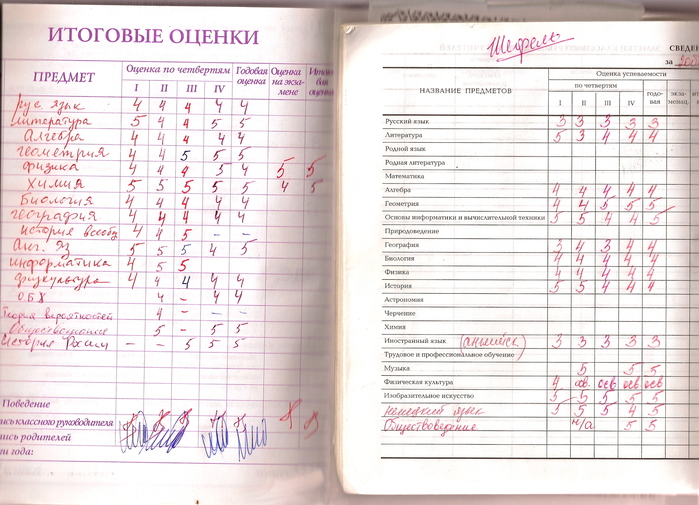 ИТОГОВЫЕ ОЦЕНКИ
ПРЕДМЕТ Оценка по четвертям Годовая оценка Оценка на экза-мене
I II III IV
рус язык 4 4 4 4 4
литература 5 4 4 5 5
Алгебра 4 4 4 4 4
геометрия 4 4 5 5 5
физика 4 4 4 5 4 5 5
химия 5 5 5 5 5 4 5
Биология 4 4 4 4 4
география 4 4 4 4 4
история всеобщ 4 4 5 - -
Анг. яз 5 5 5 4 5
информатика 4 5 5
физкультура 4 4 4 4 4
ОБЖ 4 - 4 4
Теория вероятностей 4 - -
Обществознание 5 - 5 5
История России - - 5 5 5
Поведение
пись классного руководителя
пись родителей
ли года:
Шефель
СВЕДЕН
за 200
НАЗВАНИЕ ПРЕДМЕТОВ
Оценка успеваемости
по четвертям годо-вая экза-менац.
I II III IV
Русский язык 3 3 3 3 3
Литература 5 3 4 4 4
Родной язык
Родная литература
Математика
Алгебра 4 4 4 4 4
Геометрия 4 4 5 5 5
Основы информатики и вычислительной техники 5 5 4 4 5
Природоведение
География 3 4 3 4 4
Биология 4 4 4 4 4
Физика 4 4 4 4 4
История 5 5 4 4 4
Астрономия
Черчение
Химия
Иностранный язык (английск) 3 3 3 3 3
Трудовое и профессиональное обучение
Музыка 5 5 5
Физическая культура 4 осв. осв осв осв
Изобразительное искусство 5 5 5 5 5
немецкий язык 5 5 5 4 5
Обществоведение н/а 5 5